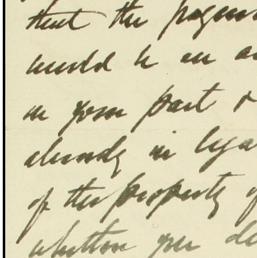 that the payment
would be an a
on your part &
already in lega
of the property of
whether you de